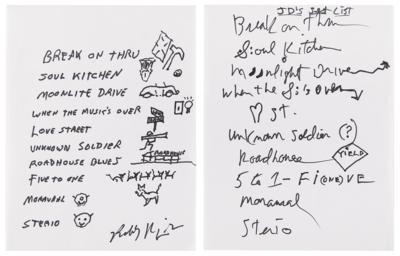 BREAK ON THRU
SOUL KITCHEN
MOONLITE DRIVE
WHEN THE MUSIC'S OVER
LOVE STREET
UNKNOWN SOLDIER
ROADHOUSE BLUES
ROADHOUSE
FIVE TO ONE
MONAURAL
STERIO
J.D'S LIST
Break on Thru
Soul Kitchen
Moonlight Drive
when the is over
ST.
unknown soldier ?
Roadhouse
YIELD
5 to 1 - Fi(ONE)VE
monaural
Sterio